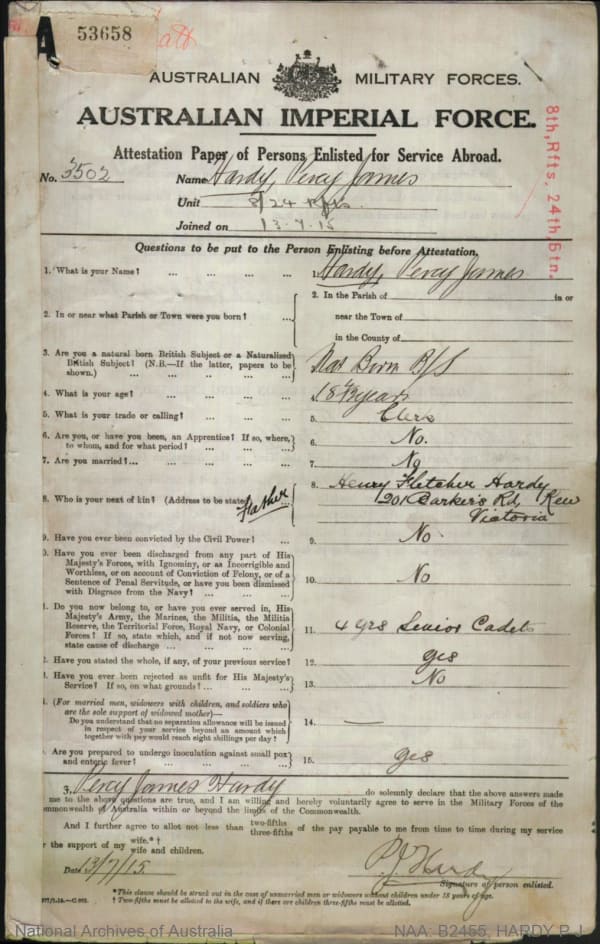 A 53658
AUSTRALIAN MILITARY FORCES.
AUSTRALIAN IMPERIAL FORCE.
Attestation Paper of Persons Enlisted for Service Abroad.
8th, Rfts, 24th Btn.
No. 3502 Name Hardy, Percy James
Unit 8/24 Rfts.
Joined on 13.7.15
Questions to be put to the Person Enlisting before Attestation.
1. What is your Name? ... ... ... ... 1. Hardy, Percy James
2. In or near what Parish or Town were you born? ...
2. In the Parish of in or
near the Town of
in the County of
3. Are you a natural born British Subject or a Naturalized
British Subject? (N.B.—If the latter, papers to be
shown.) ... ... ... ...
Nat Born B/S
4. What is your age? ... ... ... ... 18 years
5. What is your trade or calling? ... ... ... 5. Clerk
6. Are you, or have you been, an Apprentice? If so, where,
to whom, and for what period? ... ... ...
6. No.
7. Are you married? ... ... ... ... 7. No
8. Who is your next of kin? (Address to be stated) Father
8. Henry Fletcher Hardy
201 Barker's Rd, Kew
Victoria
9. Have you ever been convicted by the Civil Power? ... 9. No
0. Have you ever been discharged from any part of His
Majesty's Forces, with Ignominy, or as Incorrigible and
Worthless, or on account of Conviction of Felony, or of a
Sentence of Penal Servitude, or have you been dismissed
with Disgrace from the Navy? ... ... ...
10. No
1. Do you now belong to, or have you ever served in, His
Majesty's Army, the Marines, the Militia, the Militia
Reserve, the Territorial Force, Royal Navy, or Colonial
Forces? If so, state which, and if not now serving,
state cause of discharge ... ... ...
11. 4 yrs Senior Cadets
2. Have you stated the whole, if any, of your previous service? 12. Yes
3. Have you ever been rejected as unfit for His Majesty's
Service? If so, on what grounds? ... ... ...
13. No
(For married men, widowers with children, and soldiers who
are the sole support of widowed mother)—
Do you understand that no separation allowance will be issued
in respect of your service beyond an amount which
together with pay would reach eight shillings per day?
14. —
Are you prepared to undergo inoculation against small pox
and enteric fever? ... ... ... ...
15. Yes
Percy James Hardy do solemnly declare that the above answers made
me to the above questions are true, and I am willing and hereby voluntarily agree to serve in the Military Forces of the
ommonwealth of Australia within or beyond the limits of the Commonwealth.
And I further agree to allot not less than two-fifths three-fifths of the pay payable to me from time to time during my service
r the support of my wife.*† wife and children.
Date 13/7/15. P. J. Hardy
Signature of person enlisted.
*This clause should be struck out in the case of unmarried men or widowers without children under 18 years of age.
† Two-fifths must be allotted to the wife, and if there are children three-fifths must be allotted.
National Archives of Australia NAA: B2455, HARDY P J